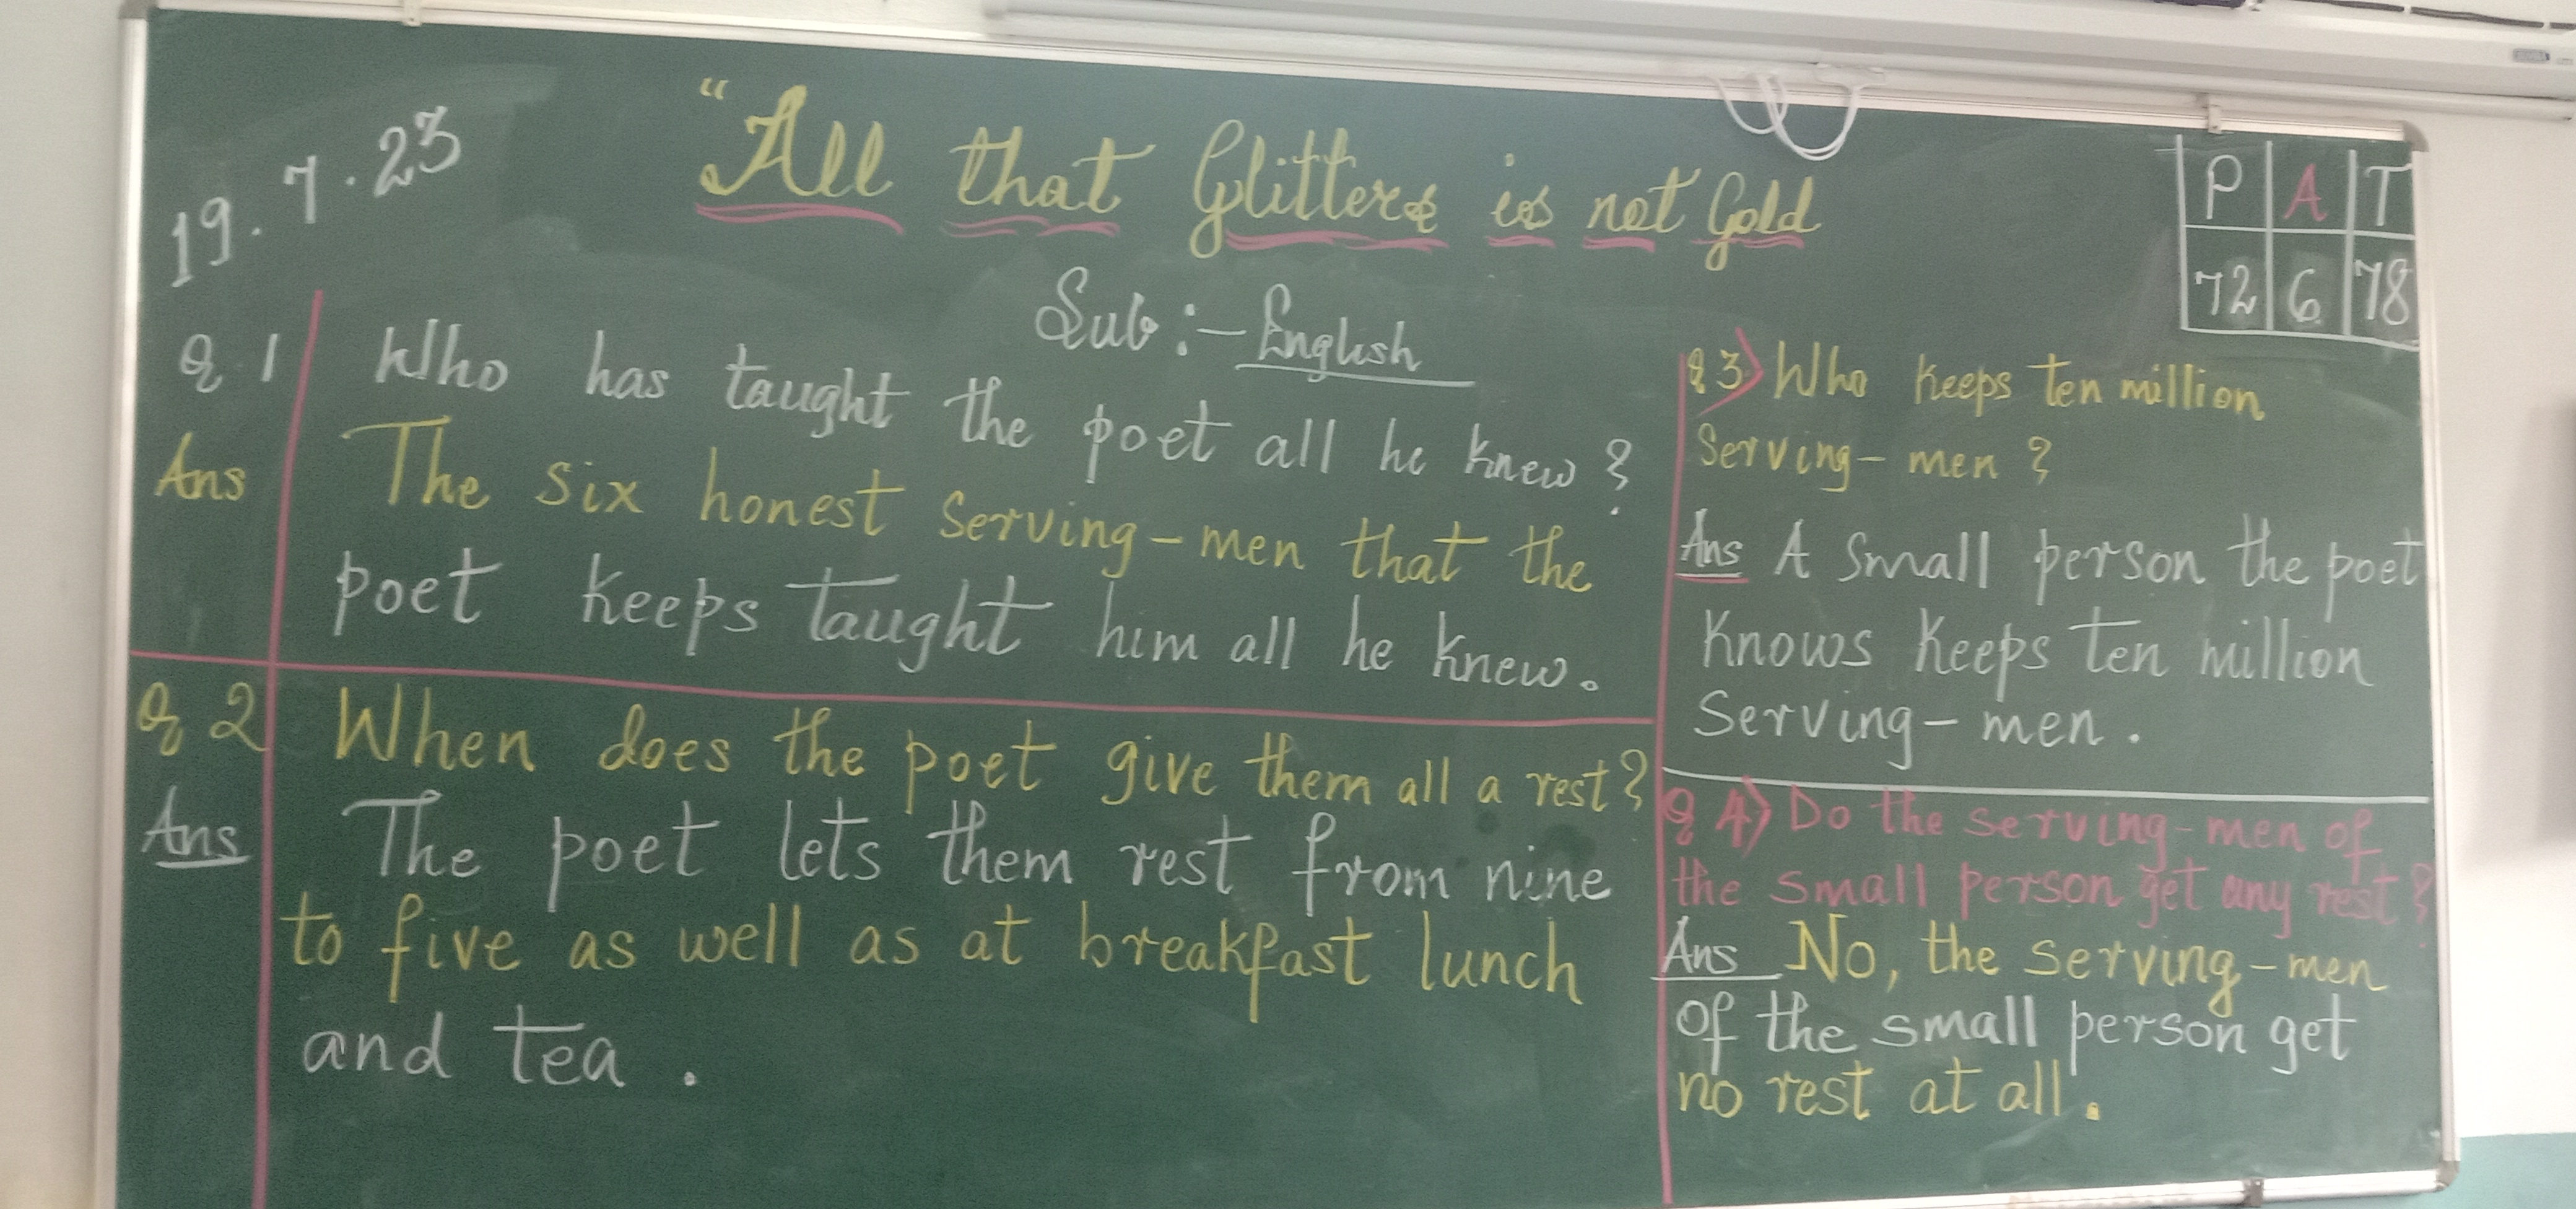 19.7.23
"All that Glitters is not Gold
P A T
72 6 78
Sub:- English
Q.1 Who has taught the poet all he knew?
Ans The six honest Serving-men that the
poet keeps taught him all he knew.
Q 2 When does the poet give them all a rest?
Ans The poet lets them rest from nine
to five as well as at breakfast lunch
and tea.
Q 3) Who keeps ten million
Serving-men?
Ans A Small person the poet
Knows Keeps ten million
Serving-men.
Q 4) Do the serving-men of
the small person get any rest?
Ans No, the serving-men
of the small person get
no rest at all.